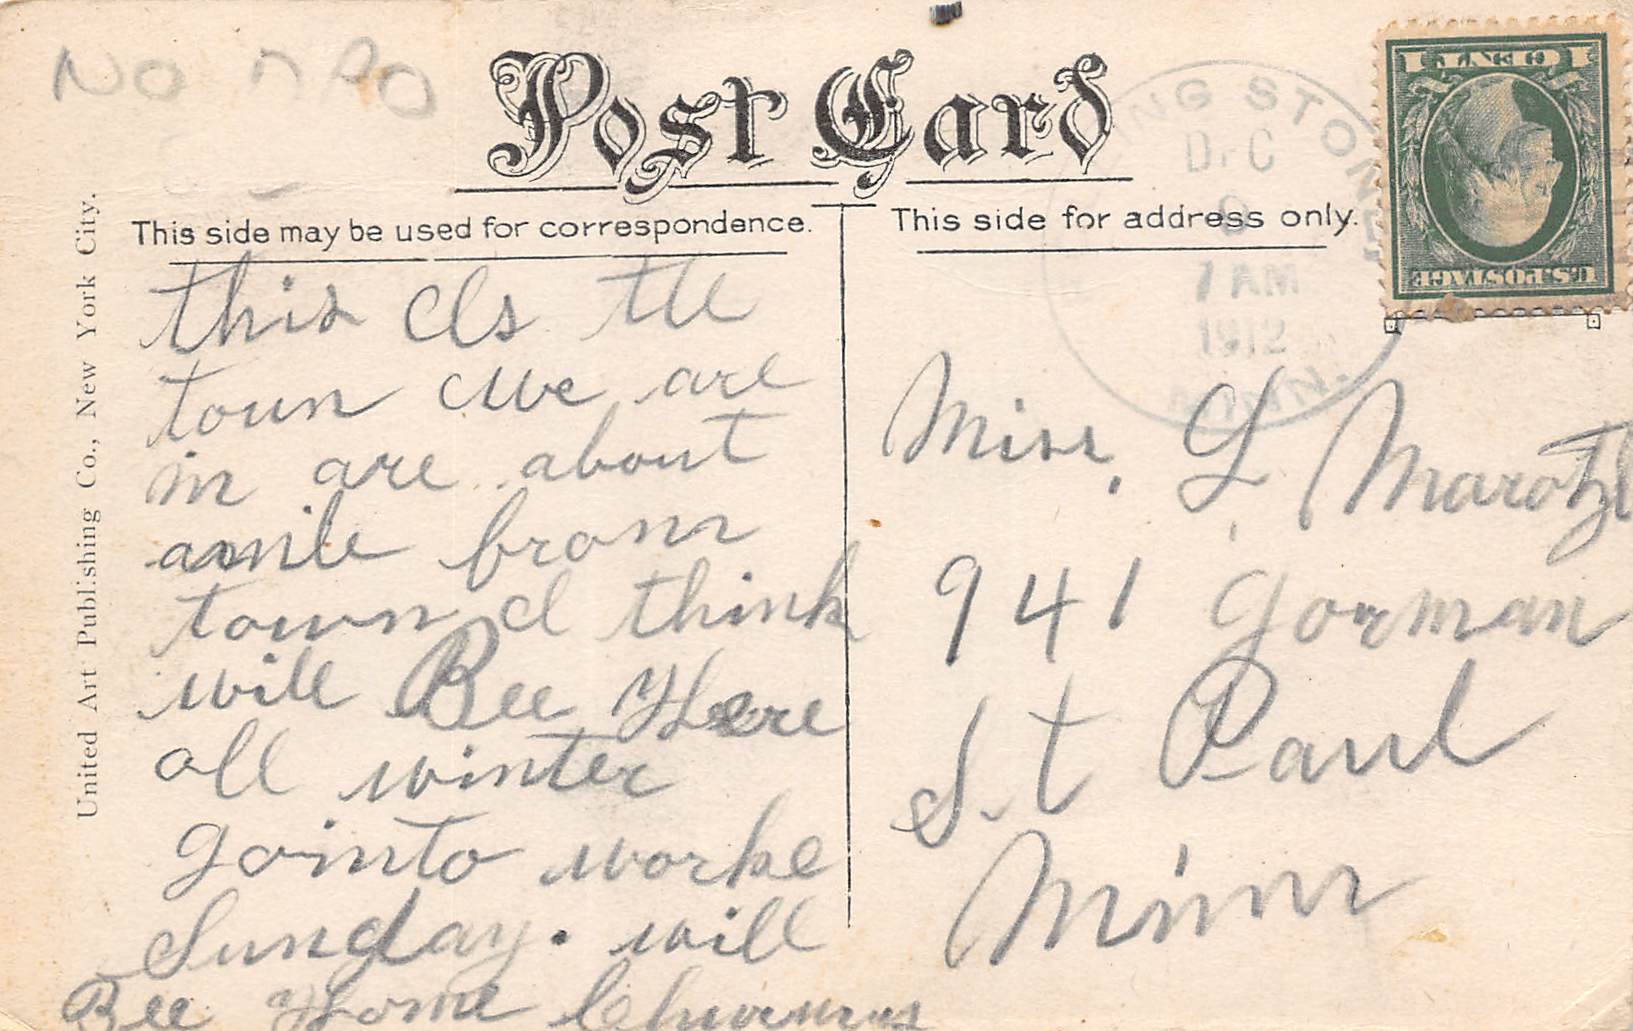 NO
Post Card
This side may be used for correspondence.
This side for address only.
United Art Publishing Co., New York City.
ING STONE
DEC
9
7 AM
1912
MINN.
1 CENT 1
U.S. POSTAGE
this Is the
town we are
in are about
amile from
town I think
will Bee Here
all winter
gointo worke
Sunday. will
Bee Home
Miss. L Marotz
941 Gorman
St Paul
Minn